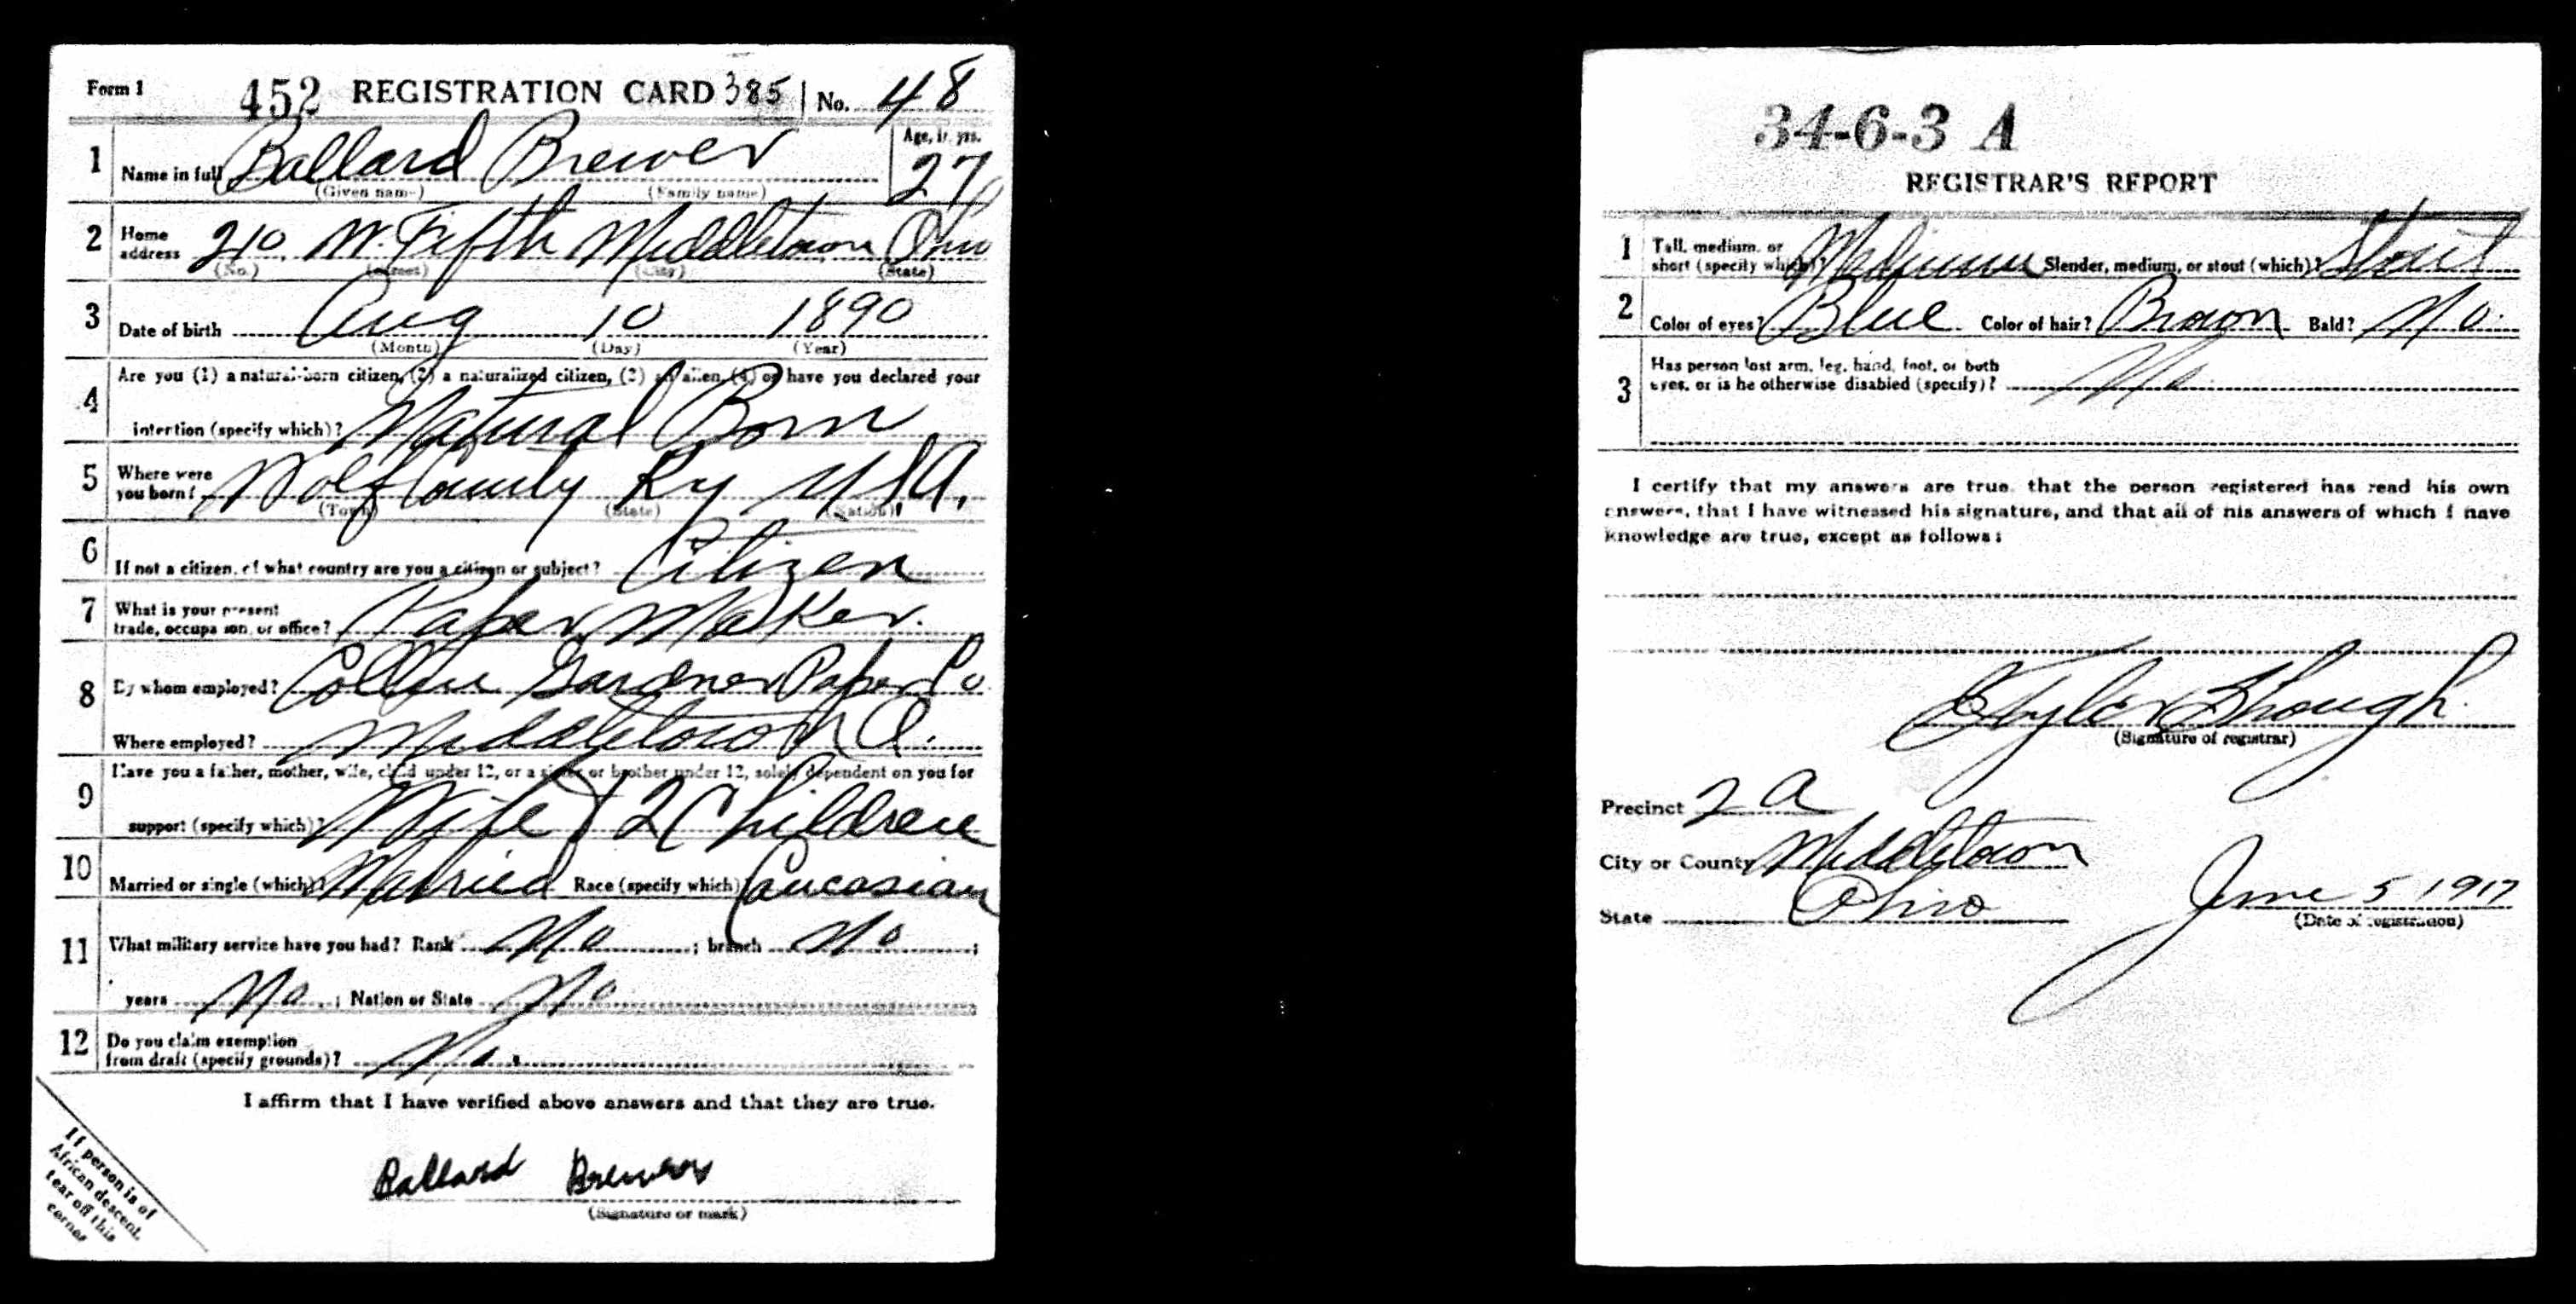 Form 1 452 REGISTRATION CARD 385 No. 48
1 Name in full Ballard Brewer Age, in yrs. 27
(Given name) (Family name)
2 Home address 210 W. Fifth Middletown Ohio
(No.) (Street) (City) (State)
3 Date of birth Aug 10 1890
(Month) (Day) (Year)
4 Are you (1) a natural-born citizen, (2) a naturalized citizen, (3) an alien, (4) or have you declared your
intention (specify which)? Natural Born
5 Where were you born? Wolf County Ky USA.
(Town) (State) (Nation)
6 If not a citizen, of what country are you a citizen or subject? Citizen
7 What is your present
trade, occupation, or office? Paper Maker.
8 By whom employed? Gardner Paper Co
Where employed? Middletown O.
9 Have you a father, mother, wife, child under 12, or a sister or brother under 12, solely dependent on you for
support (specify which)? Wife & 2 Children
10 Married or single (which)? Married Race (specify which) Caucasian
11 What military service have you had? Rank No ; branch No ;
years No. ; Nation or State No
12 Do you claim exemption
from draft (specify grounds)? No.
I affirm that I have verified above answers and that they are true.
Ballard Brewer
(Signature or mark)
If person is of
African descent,
tear off this
corner
34-6-3 A
REGISTRAR'S REPORT
1 Tall, medium, or
short (specify which)? Medium Slender, medium, or stout (which)? Stout
2 Color of eyes? Blue Color of hair? Brown Bald? No.
3 Has person lost arm, leg, hand, foot, or both
eyes, or is he otherwise disabled (specify)? No
I certify that my answers are true, that the person registered has read his own
answers, that I have witnessed his signature, and that all of his answers of which I have
knowledge are true, except as follows:
(Signature of registrar)
Precinct 2 A
City or County Middletown
State Ohio June 5 1917
(Date of registration)